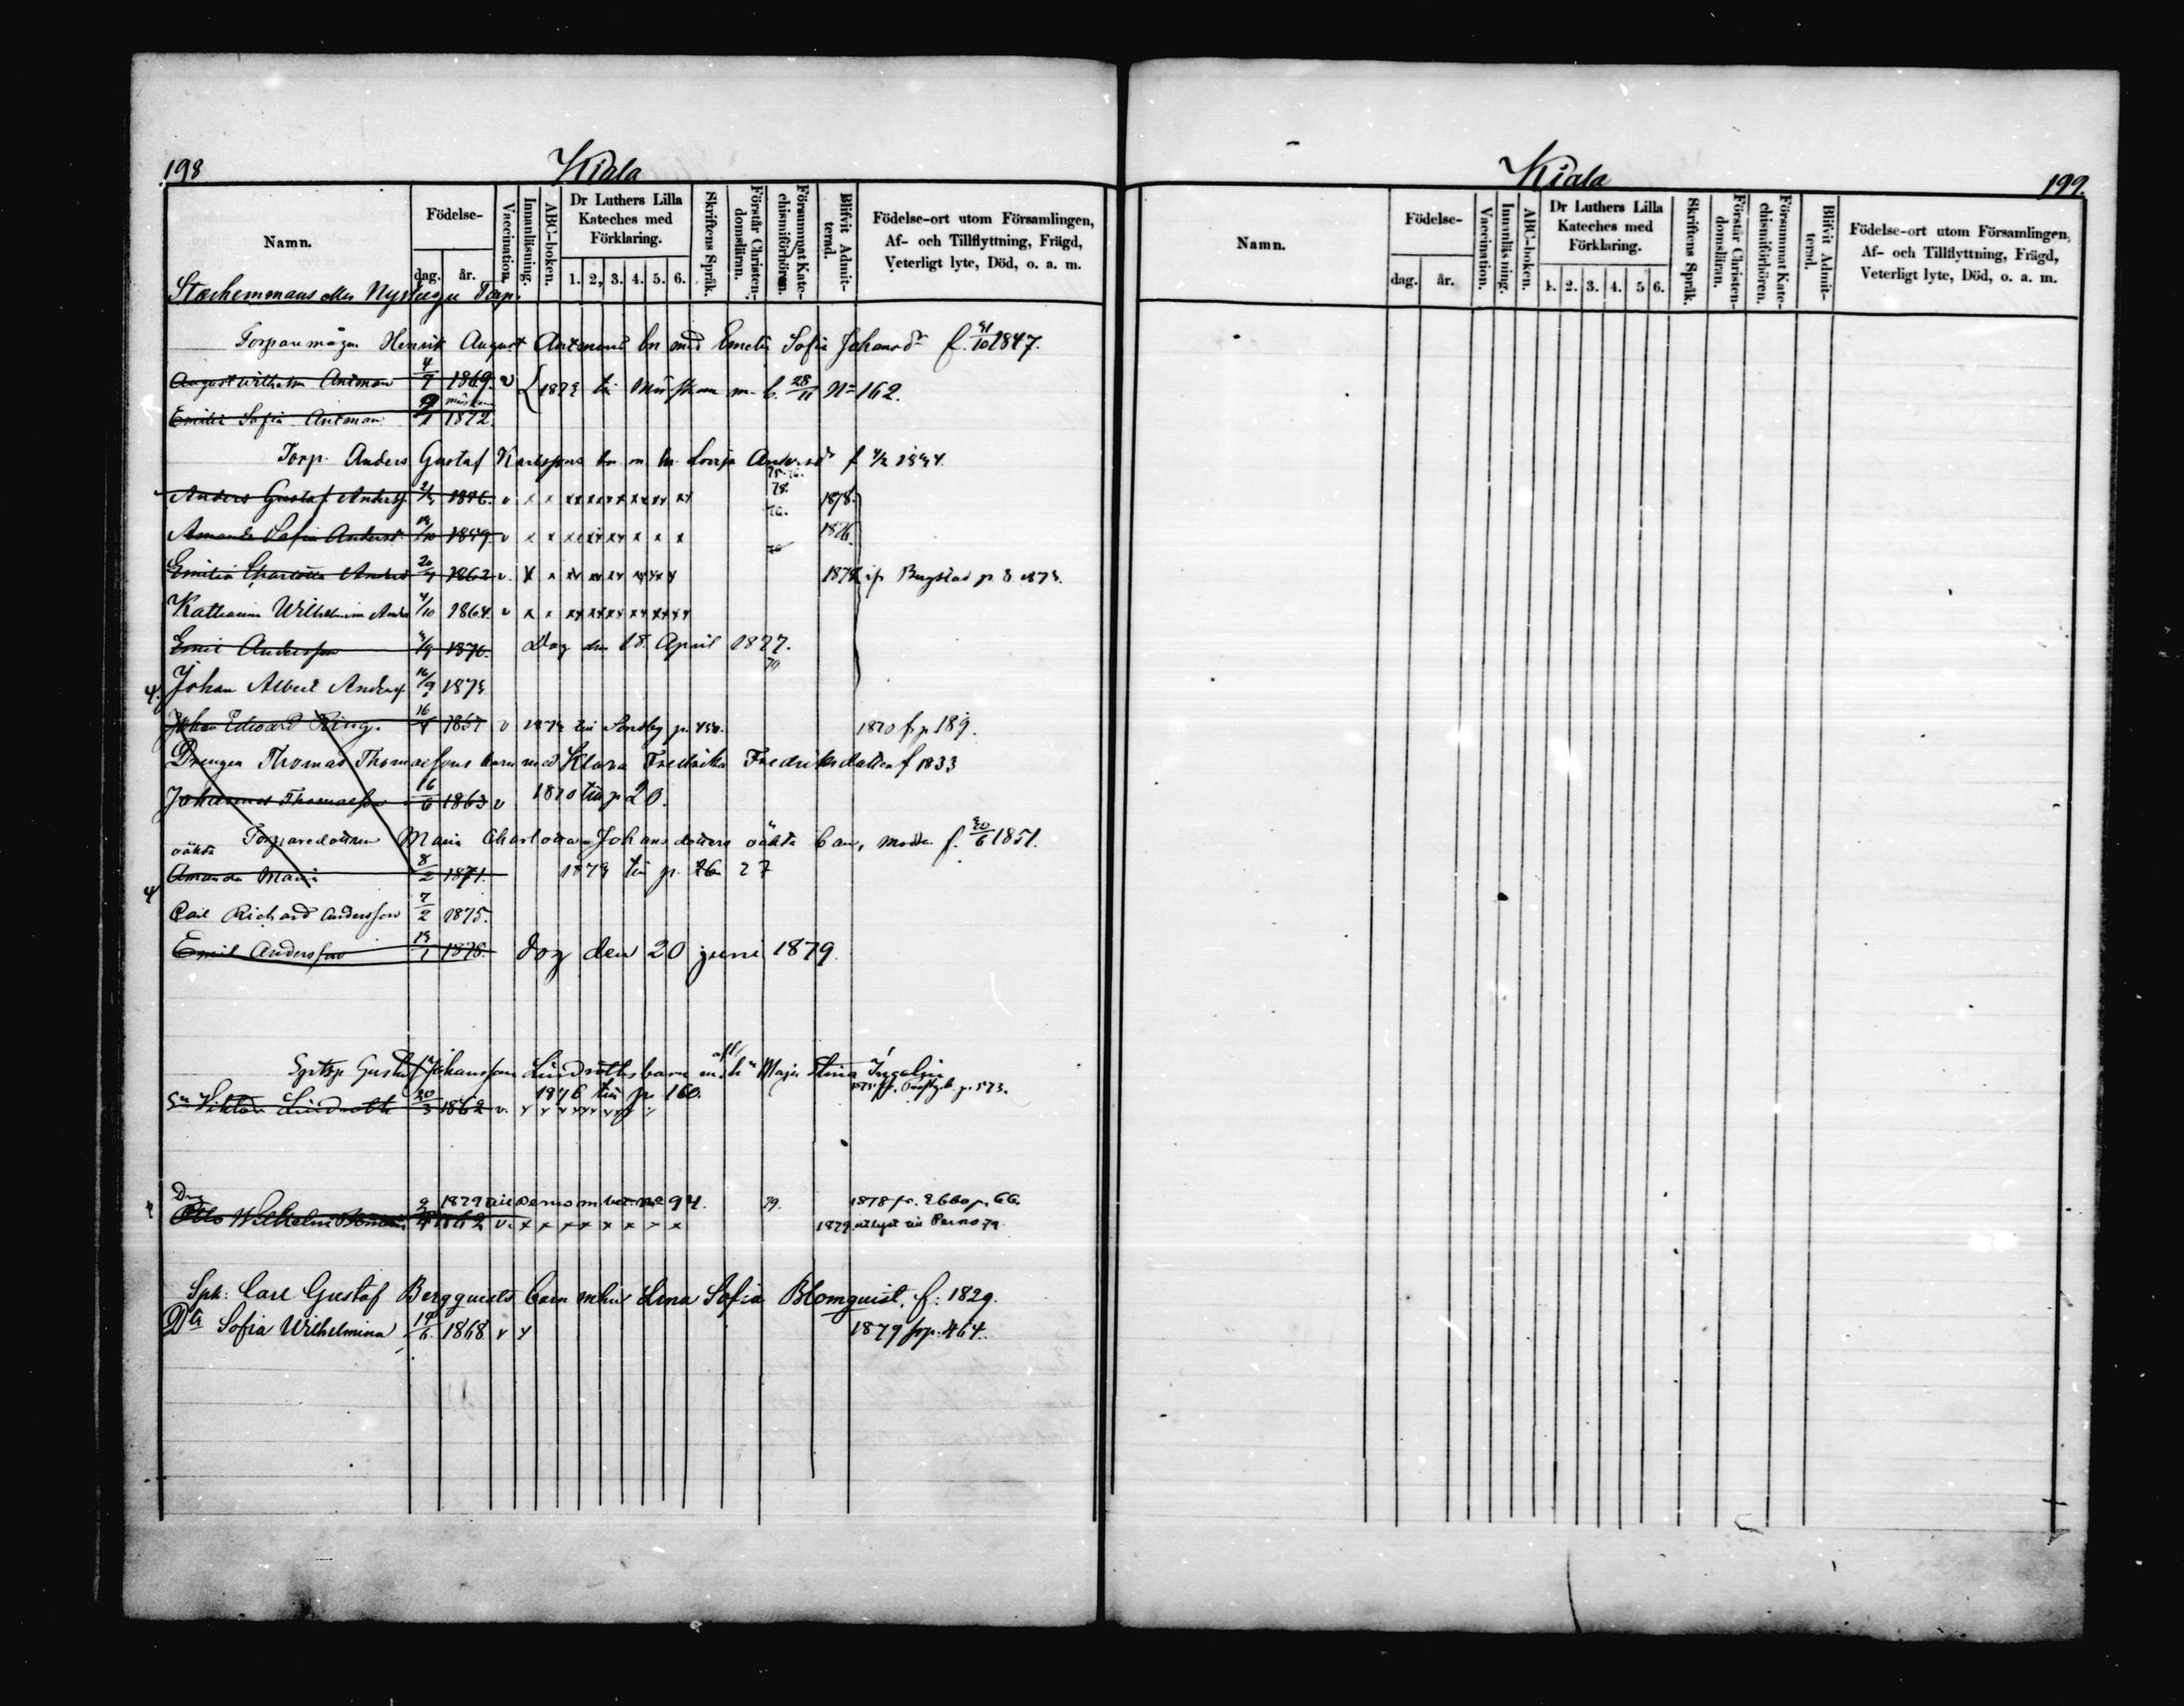 198 Kiala
Namn. Födelse- dag. år. Vaccination. Innanläsning. ABC-boken. Dr Luthers Lilla Kateches med Förklaring. 1. 2. 3. 4. 5. 6. Skriftens Språk. Förstår Christendomsläran. Försummat Katechismiförhören. Blifvit Admitterad. Födelse-ort utom Församlingen, Af- och Tillflyttning, Frägd, Veterligt lyte, Död, o. a. m.
Storhemmans eller Torp.
Torparemågen Henrik August Antmans bn med Emelie Sofia Johansdr f. /10 1847.
August Wilhelm Antman 4/7 1869. v 1873 till m. b. 28/11 N= 162.
Emilia Sofia Antman 9/1 1872.
Torp. Anders Gustaf Karlssons bn m. h. Lovisa Andersdr f
Anders Gustaf Anderss. 1856. v x x xx xx xx xx xx xx 75.76. 78. 1878.
Amanda Sofia Andersd. 19/10 1859. v x x xx xx xx x x x 76. 1876.
Emilia Charlotta Andersd 20/4 1862 v. x x xx xx xx xx xx x 1878. p 8 1873.
Katharina Wilhelmina Andsd 4/10 1864 v x x xx xx xx xx xx xx
Emil Andersson 1876. Dog den 18 April 1877.
4. Johan Albert Anderss. 16/9 1873 79
Johan Edward Ring. 16/4 1857 v 1873 till p. 450. 1870 fr p 189.
Drengen Thomas Thomassons barn med Klara Fredrika Fredriksdotter f 1833
Johannes Thomasson 16/6 1863 v 1870 till p 20.
Torparedottren Maria Charlotta Johansdotters oäkta barn, modren f. 20/6 1851.
oäkta
Amanda Maria 8/2 1871. 1873 till p. 27
4 Carl Richard Andersson 7/2 1875.
Emil Andersson 19/1 1878. Dog den 20 juni 1879.
Gustaf Johansson Lindroths barn m. afl. h. Maja Stina Ingelin
Sn Viktor Lindroth 20/3 1862 v. 1876 till p. 160. x x x x x x x x x p. 573.
Drg
Otto Wilhelm 9/4 1862 v. 1879 till Perno m. bet. N= 94. x x x x x x x x 79. 1879. 1878 fr. Ebbo p. 66. utlyst till Perno 79.
Sph: Carl Gustaf Bergquists barn m hu Lena Sofia Blomquist, f: 1829.
Dtr Sofia Wilhelmina 19/6 1868 x x 1879 frp. 464.
Kiala 199.
Namn. Födelse- dag. år. Vaccination. Innanläsning. ABC-boken. Dr Luthers Lilla Kateches med Förklaring. 1. 2. 3. 4. 5 6. Skriftens Språk. Förstår Christendomsläran. Försummat Katechismiförhören. Blifvit Admitterad. Födelse-ort utom Församlingen, Af- och Tillflyttning, Frägd, Veterligt lyte, Död, o. a. m.